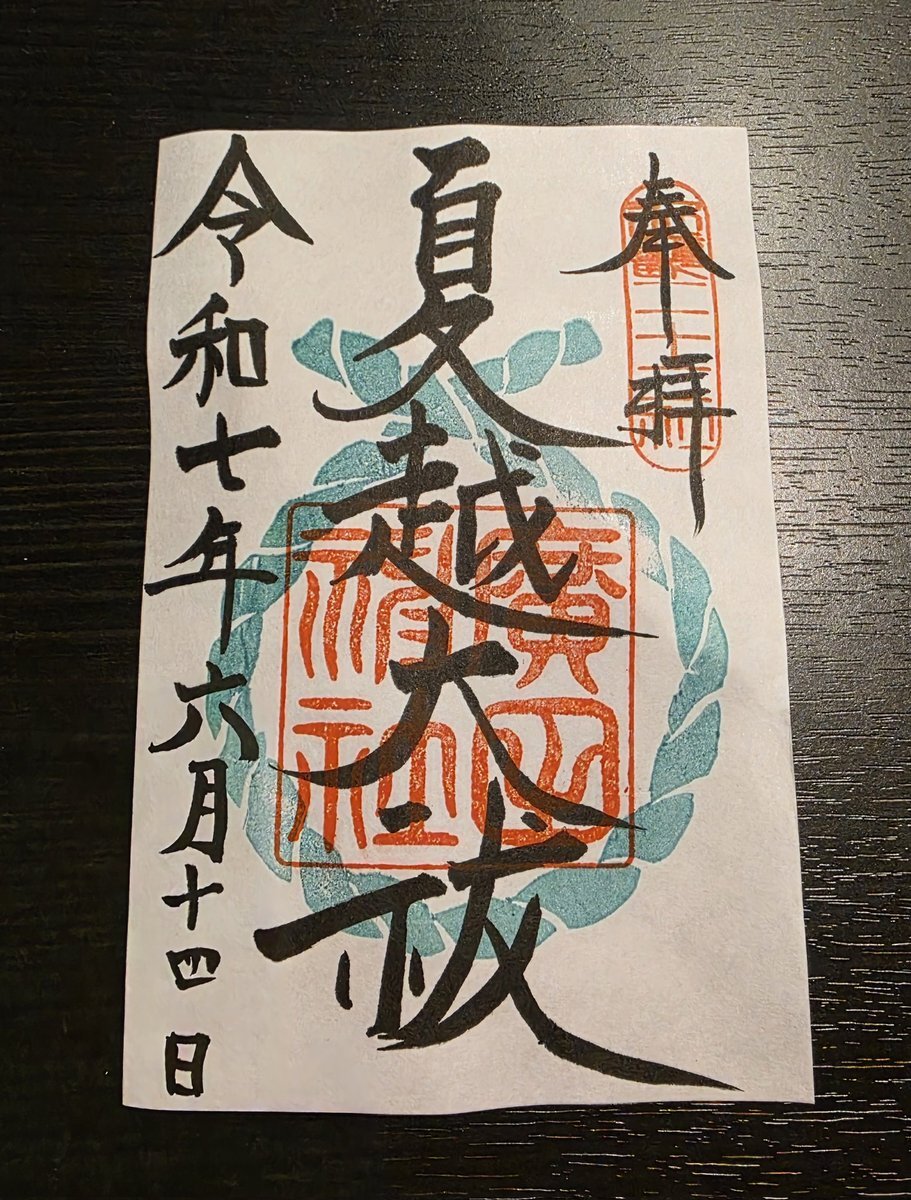 奉拝
夏越大祓
令和七年六月十四日